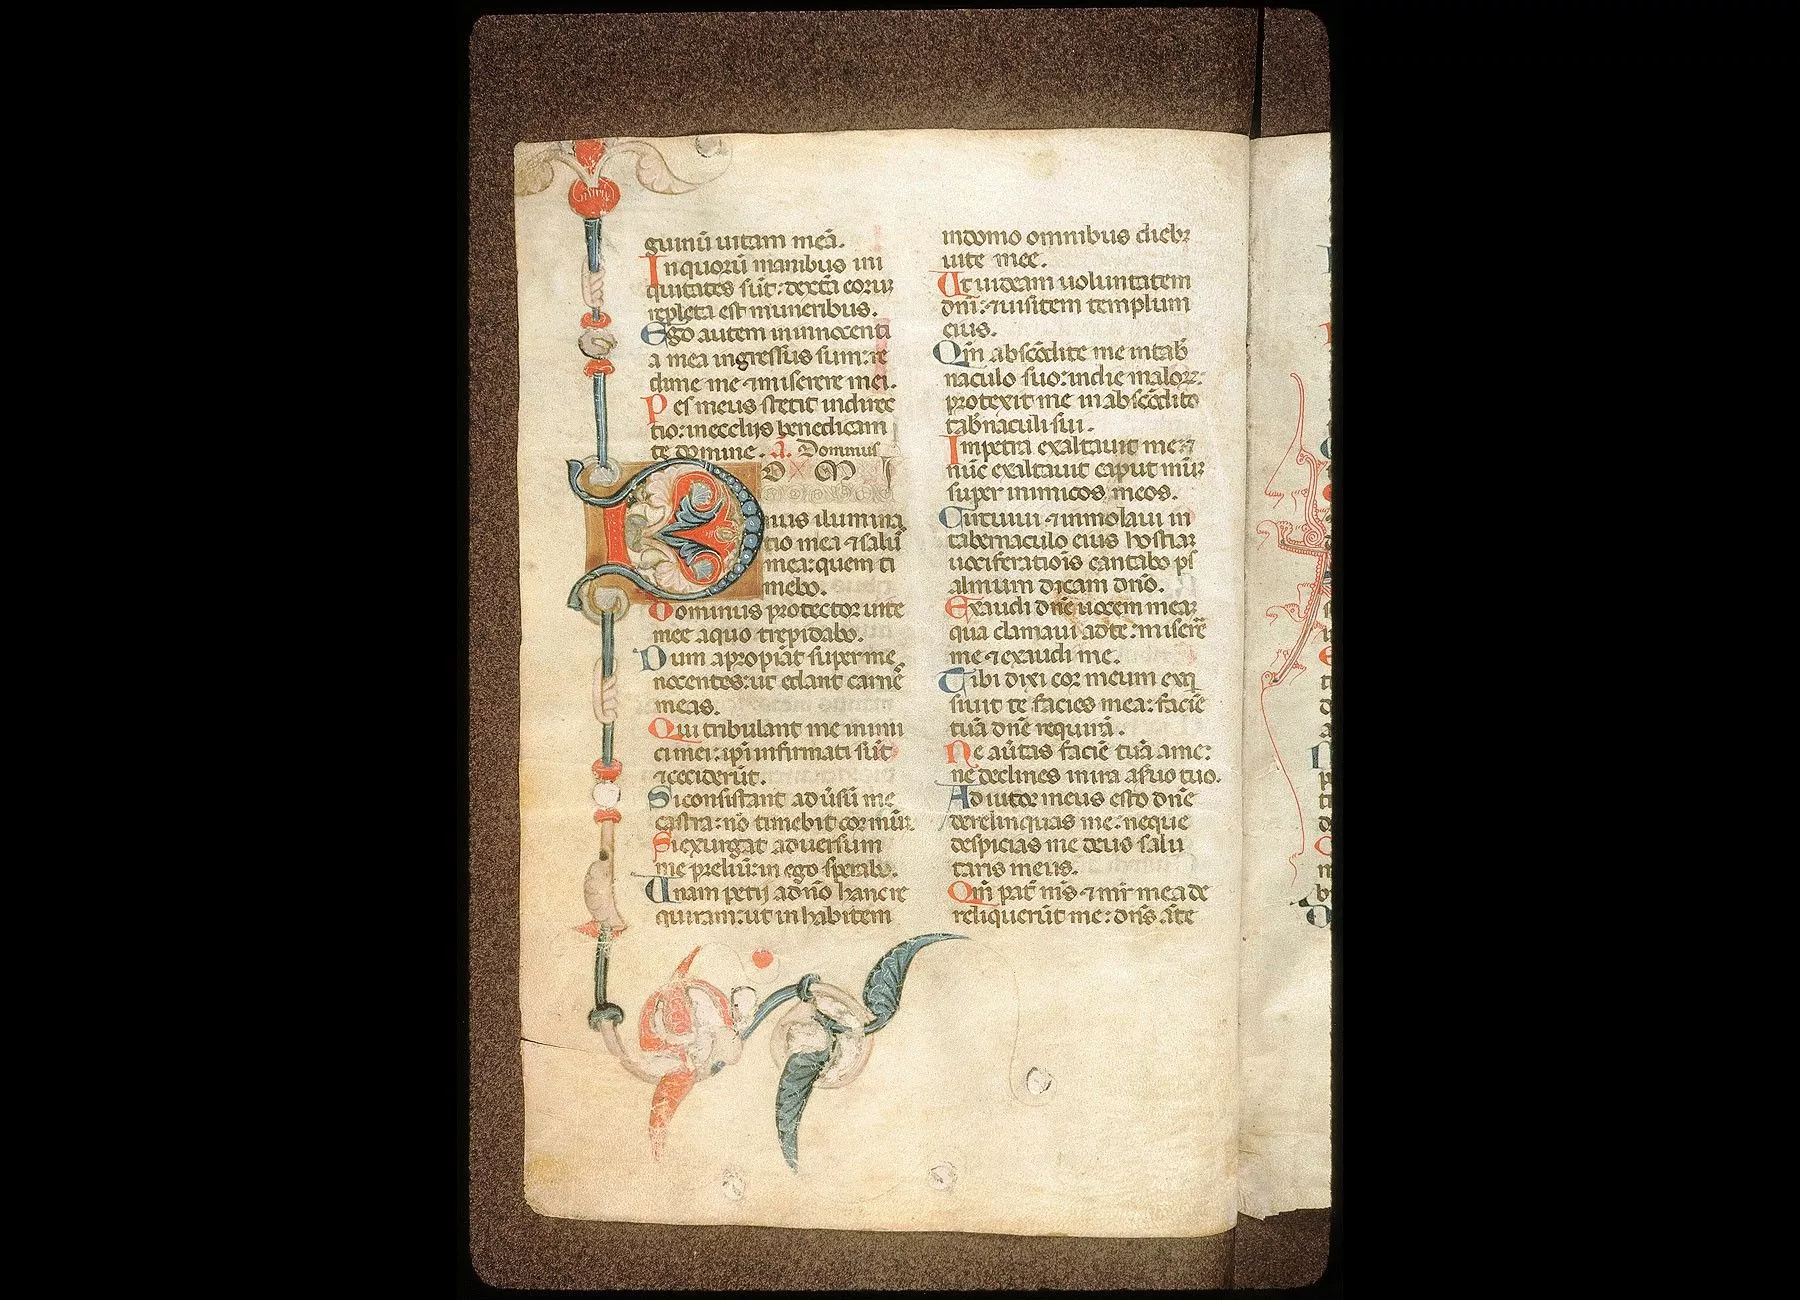 guinū uitam meā.
Inquorū manibus ini
quitates sūt: dextā eorū
repleta est muneribus.
Ego autem ininnocenti
a mea ingressus sum: re
dime me ⁊ miserere mei.
Pes meus stetit indirec
tio: inecclijs benedicam
te domine. a. Dominus
D O M I
nus ilumina
tio mea ⁊ salu
mea: quem ti
mebo.
Dominus protector uite
mee aquo trepidabo.
Dum apropiāt super me
nocentes: ut edant carnē
meas.
Qui tribulant me inimi
ci mei: ipi infirmati sūt
⁊ceciderūt.
Si consistant adūsū me
castra: nō timebit cor mūm.
Si exurgat aduersum
me preliū: in ego sperabo.
Unam petij adnō hanc re
quiram: ut in habitem
indomo omnibus dieb;
uite mee.
Ut uideam uoluntatem
dnī: ⁊uisitem templum
eius.
Qm̄ abscōdite me intab
naculo suo: indie maloꝝ:
protexit me inabscōdito
tabnaculi sui.
Inpetra exaltauit me: ⁊
nūc exaltauit caput mūm
super inimicos meos.
Circuiui ⁊ immolaui in
tabernaculo eius hostiam
uociferatiōis cantabo ps
almum dicam dnō.
Exaudi dnē uocem meam
qua clamaui adte: miserē
me ⁊ exaudi me.
Tibi dixi cor meum exq
siuit te facies mea: faciē
tuā dnē requirā.
Ne aūtas faciē tuā ame:
ne declines inira aſuo tuo.
Adiutor meus esto dnē
derelinquas me: neque
despicias me deus salu
taris meus.
Qm̄ pat̄ m̄s ⁊ mr̄ mea de
reliquerūt me: dn̄s āte